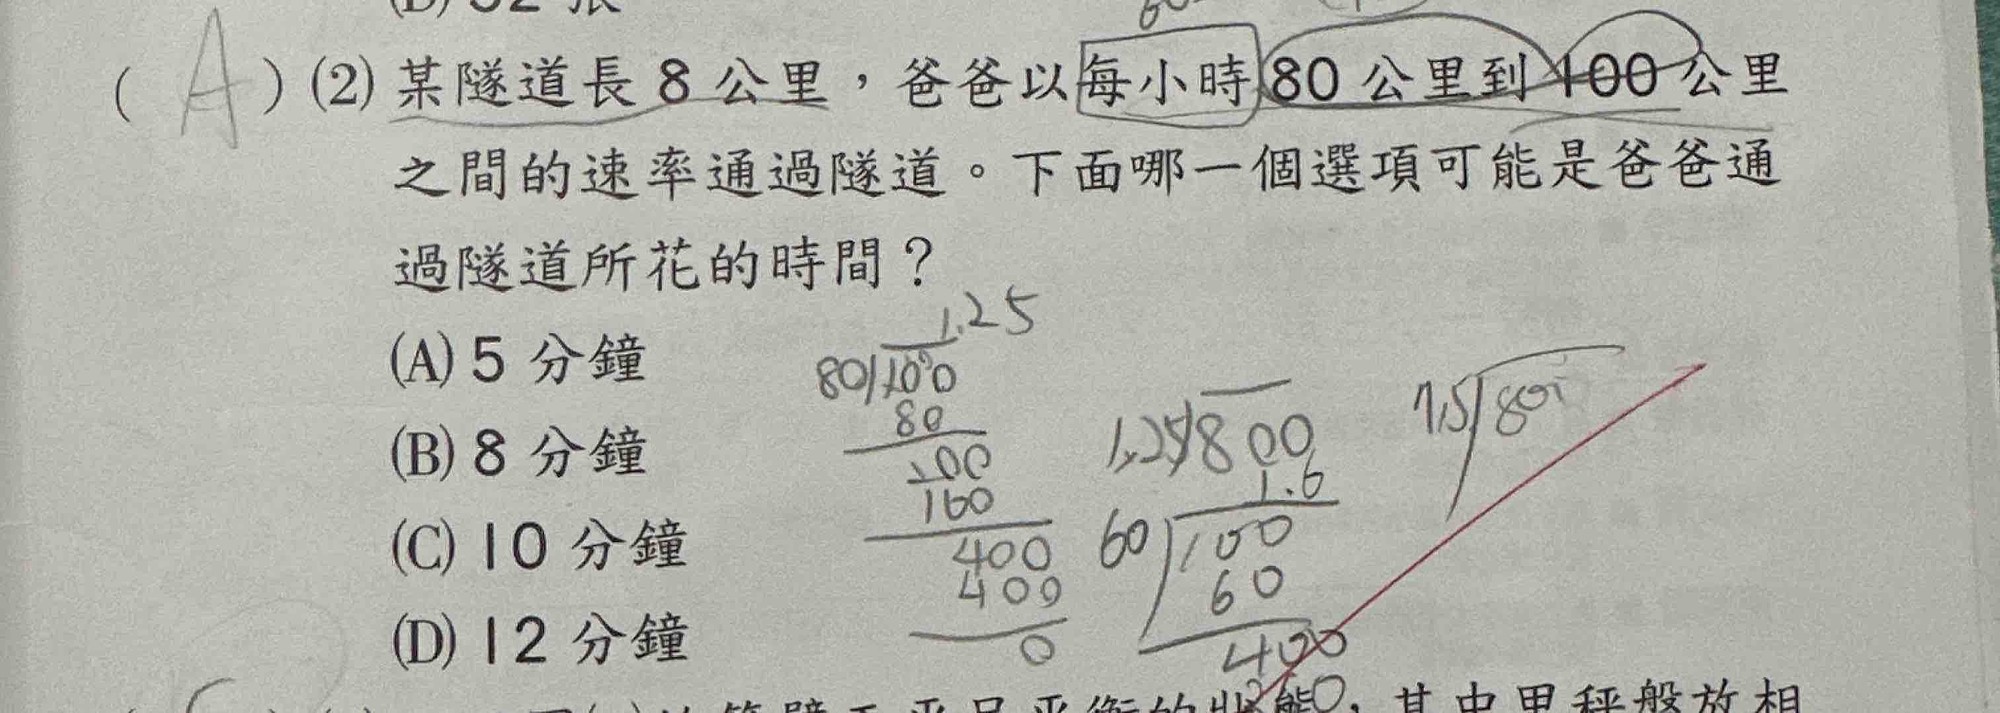 (D) 32 張
( A ) (2) 某隧道長 8 公里，爸爸以每小時 80 公里到 100 公里
之間的速率通過隧道。下面哪一個選項可能是爸爸通
過隧道所花的時間？
(A) 5 分鐘
(B) 8 分鐘
(C) 10 分鐘
(D) 12 分鐘
1.25
80 100
80
200
160
400
400
0
1.25 800
1.6
60 100
60
400
7.5 80